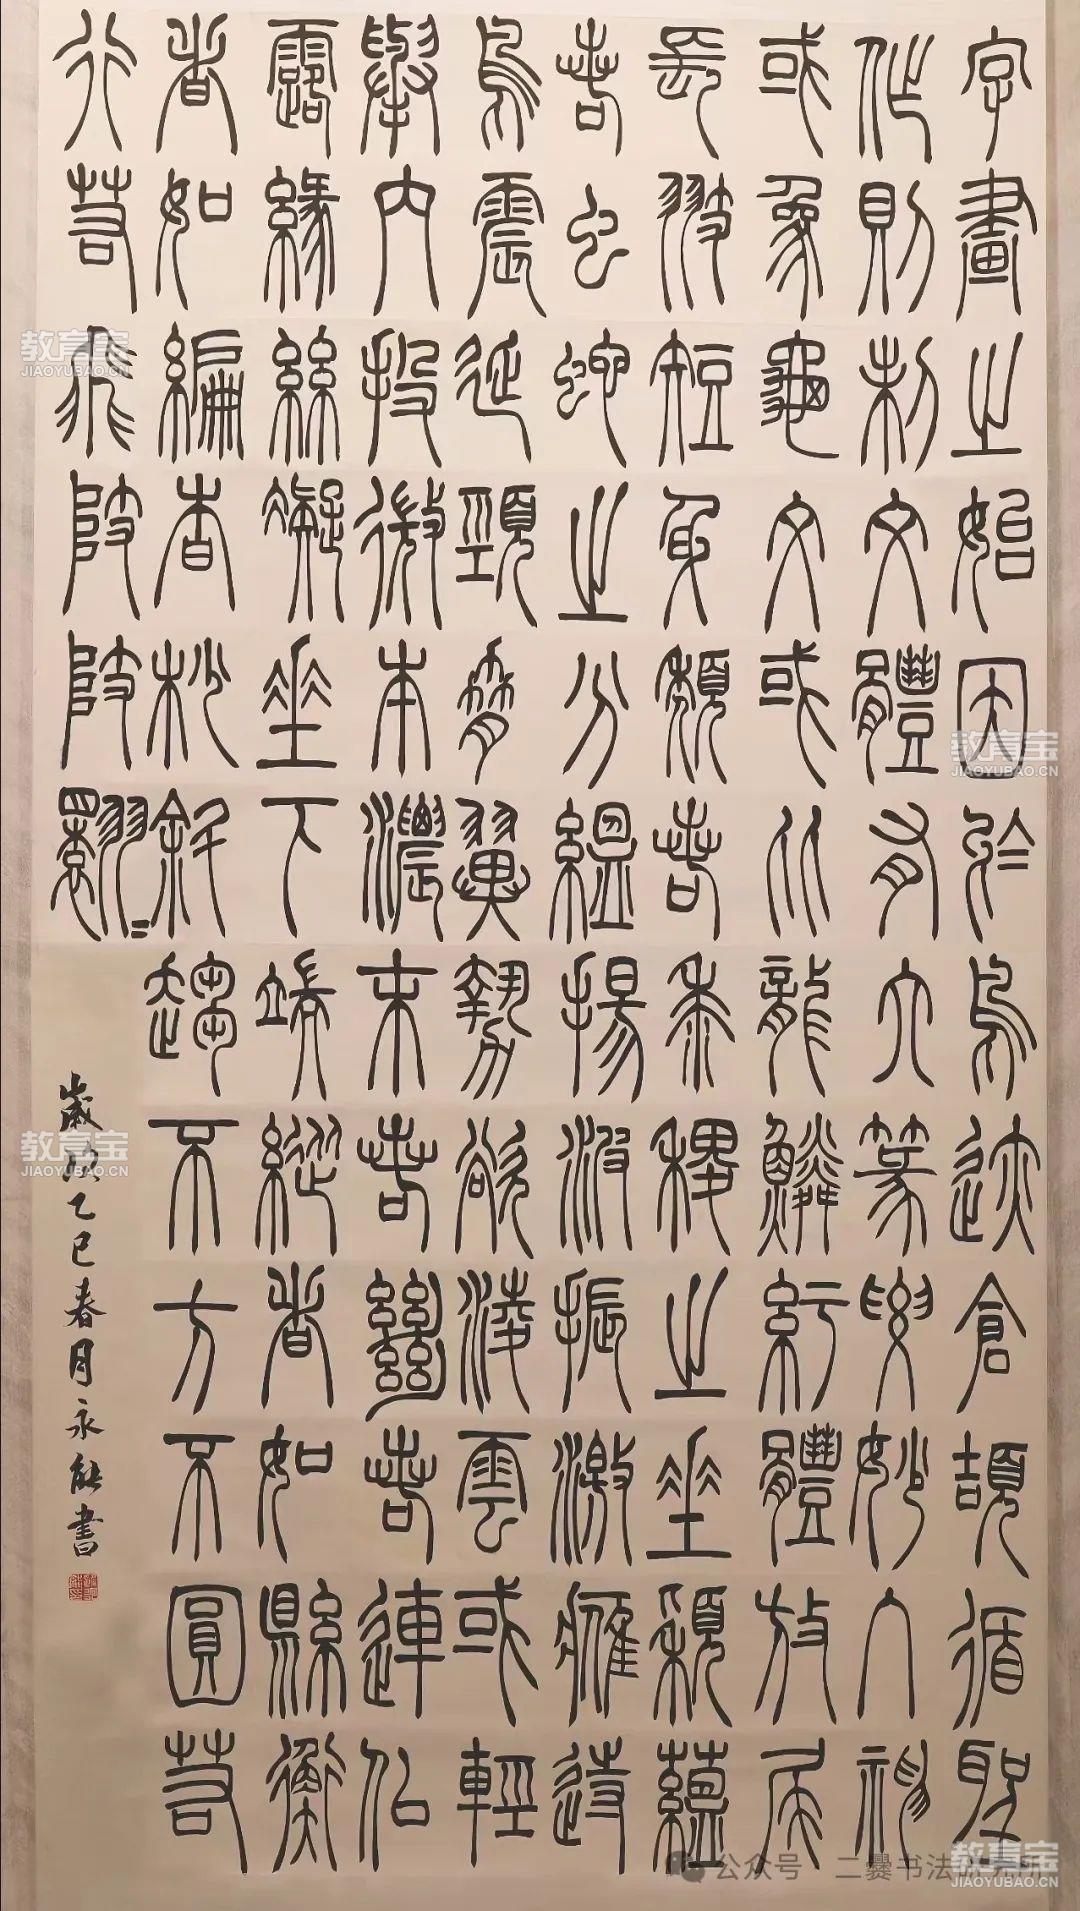 字畫之始因於鳥迹倉頡循聖
作則制文體有六篆要妙入神
或象龜文或比龍鱗紆體放尾
長翅短身頹若黍稷之垂穎蘊
若虫蛇之分縕揚波振激鷹跱
鳥震延頸脅翼勢欲凌雲或輕
舉內投微本濃末若絕若連似
露緣絲凝垂下端縱者如縣衡
者如編杳杪斜趨不方不圓若
行若飛陂陂翾〻
歲次乙巳春月永能書
教育宝
JIAOYUBAO.CN
教育宝
JIAOYUBAO.CN
教育宝
JIAOYUBAO.CN
教育宝
JIAOYUBAO.CN
公众号 二爨书法研究所